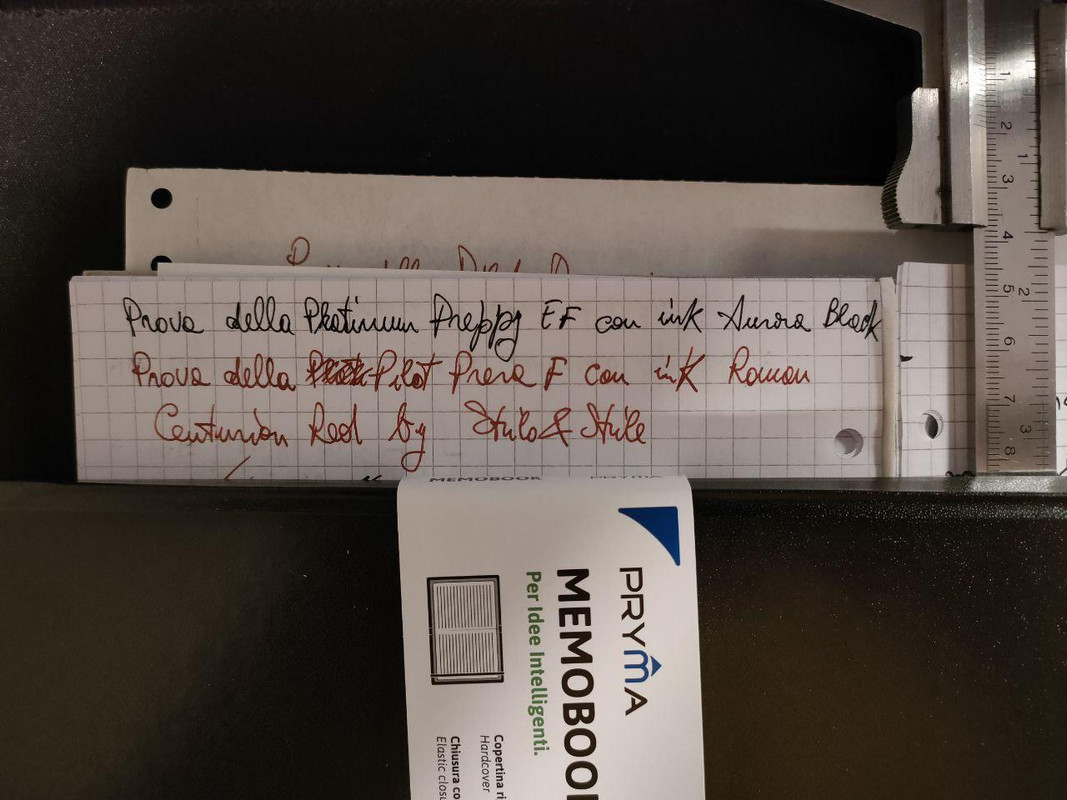 Prova della Platinum Preppy EF con ink Aurora Black
Prova della Pilot Prera F con ink Roman
Centurion Red by Stilo & Stile
MEMOBOOK PRYMA
PRYMA
MEMOBOO
Per Idee Intelligenti.
Copertina ri
Hardcover
Chiusura co
Elastic closu
1 2 3 4 5 6 7 8
1 2 3